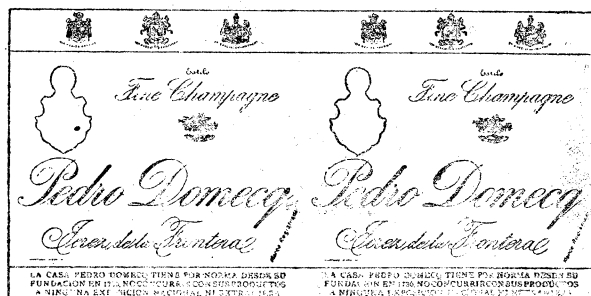 Estilo
Fine Champagne
Pedro Domecq
Jerez de la Frontera
LA CASA PEDRO DOMECQ TIENE POR NORMA DESDE SU
FUNDACION EN 1730, NO CONCURRIR CON SUS PRODUCTOS
A NINGUNA EXPOSICION NACIONAL NI EXTRANJERA
Estilo
Fine Champagne
Pedro Domecq
Jerez de la Frontera
LA CASA PEDRO DOMECQ TIENE POR NORMA DESDE SU
FUNDACION EN 1730, NO CONCURRIR CON SUS PRODUCTOS
A NINGUNA EXPOSICION NACIONAL NI EXTRANJERA